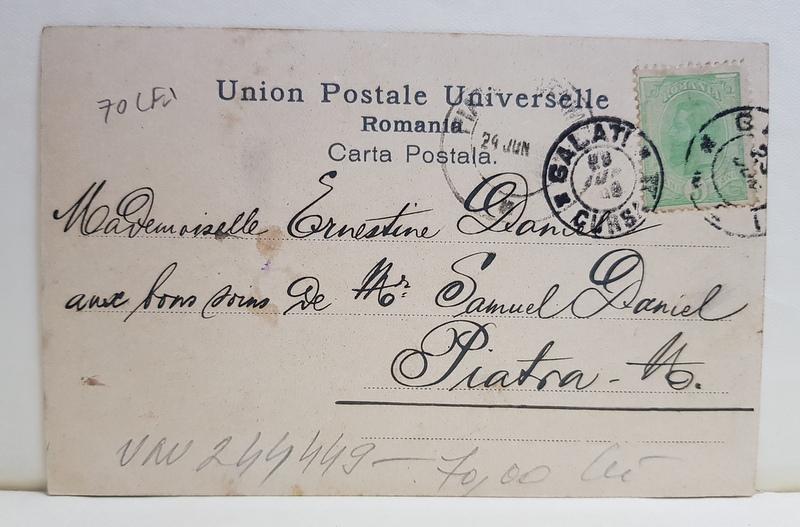 70 LEI
Union Postale Universelle
Romania
Carta Postala.
24 JUN
GALATI
CURSA
ROMANIA
Mademoiselle Ernestine Daniel
aux bons soins de Mr. Samuel Daniel
Piatra-N.
244449 — 70,00 lei